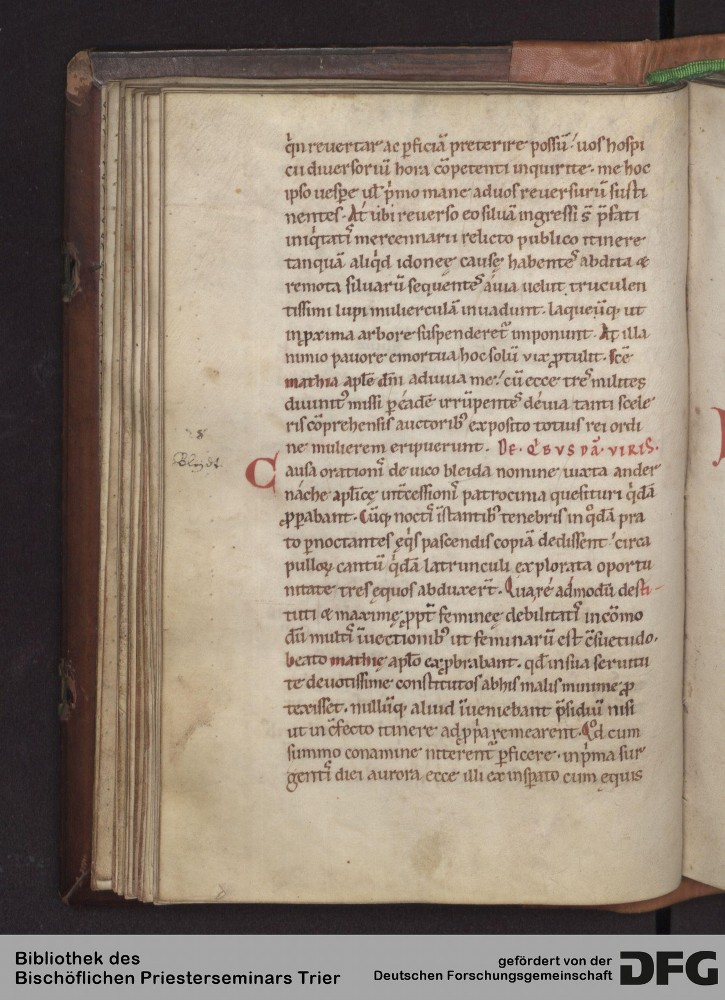 q̇n reuertar ac ꝑficiā preterire possū. uos hospi
cii diuersoriū hora cōpetenti inquirite. me hoc
ipso uespe ul̄ pͥmo mane ad uos reuersurū susti
nentes. At ubi reuerso eo siluā ingressi s̄ p̄fati
iniq̇tatꝭ mercennarii relicto publico itinere
tanquā aliq̇d idoneę causę habentes abdita &
remota siluarū sequentes auia uelut truculen
tissimi lupi mulierculā inuadunt. laqueūq; ut
in ꝓxima arbore suspenderet᷑ imponunt. At illa
nimio pauore emortua hoc solū vix ꝓtulit. Sc̄e
mathia apl̄e dn̄i adiuua me. cū ecce tres milites
diuinitꝰ missi ꝑ eādē irrūpentes deuia tanti scele
ris cōprehensis auctoribꝰ exposito totius rei ordi
ne mulierem eripuerunt. DE Q̇BVSDĀ VIRIS.
Causa orationꝭ de uico bleida nomine iuxta ander
nache apl̄icę int̄cessionꝭ patrocinia quesituri q̇dā
ꝓꝑabant. Cūq; noctꝭ īstantibꝰ tenebris in q̊dā pra
to ꝑnoctantes eq̇s pascendis copiā dedissent. circa
pulloꝝ cantū q̇dā latrunculi explorata oportu
nitate tres equos abduxer̄t. Quare admodū desti
tuti & maximę ꝓpt̄ femineę debilitatꝭ incōmo
dū multꝭ īuectionibꝰ ut feminarū est c̄suetudo.
beato mathię aplo exꝓbrabant. qd̄ in sua seruitu
te deuotissime constitutos ab his malis minime ꝓ
texisset. nullūq; aliud īueniebant p̄sidiū nisi
ut inc̄fecto itinere ad ꝓpͥa remearent. Qd̊ cum
summo conamine niterent᷑ ꝑficere. in pͥma sur
gentꝭ diei aurora ecce illi ex insꝑato cum equis
Bibliothek des
Bischöflichen Priesterseminars Trier
gefördert von der
Deutschen Forschungsgemeinschaft
DFG